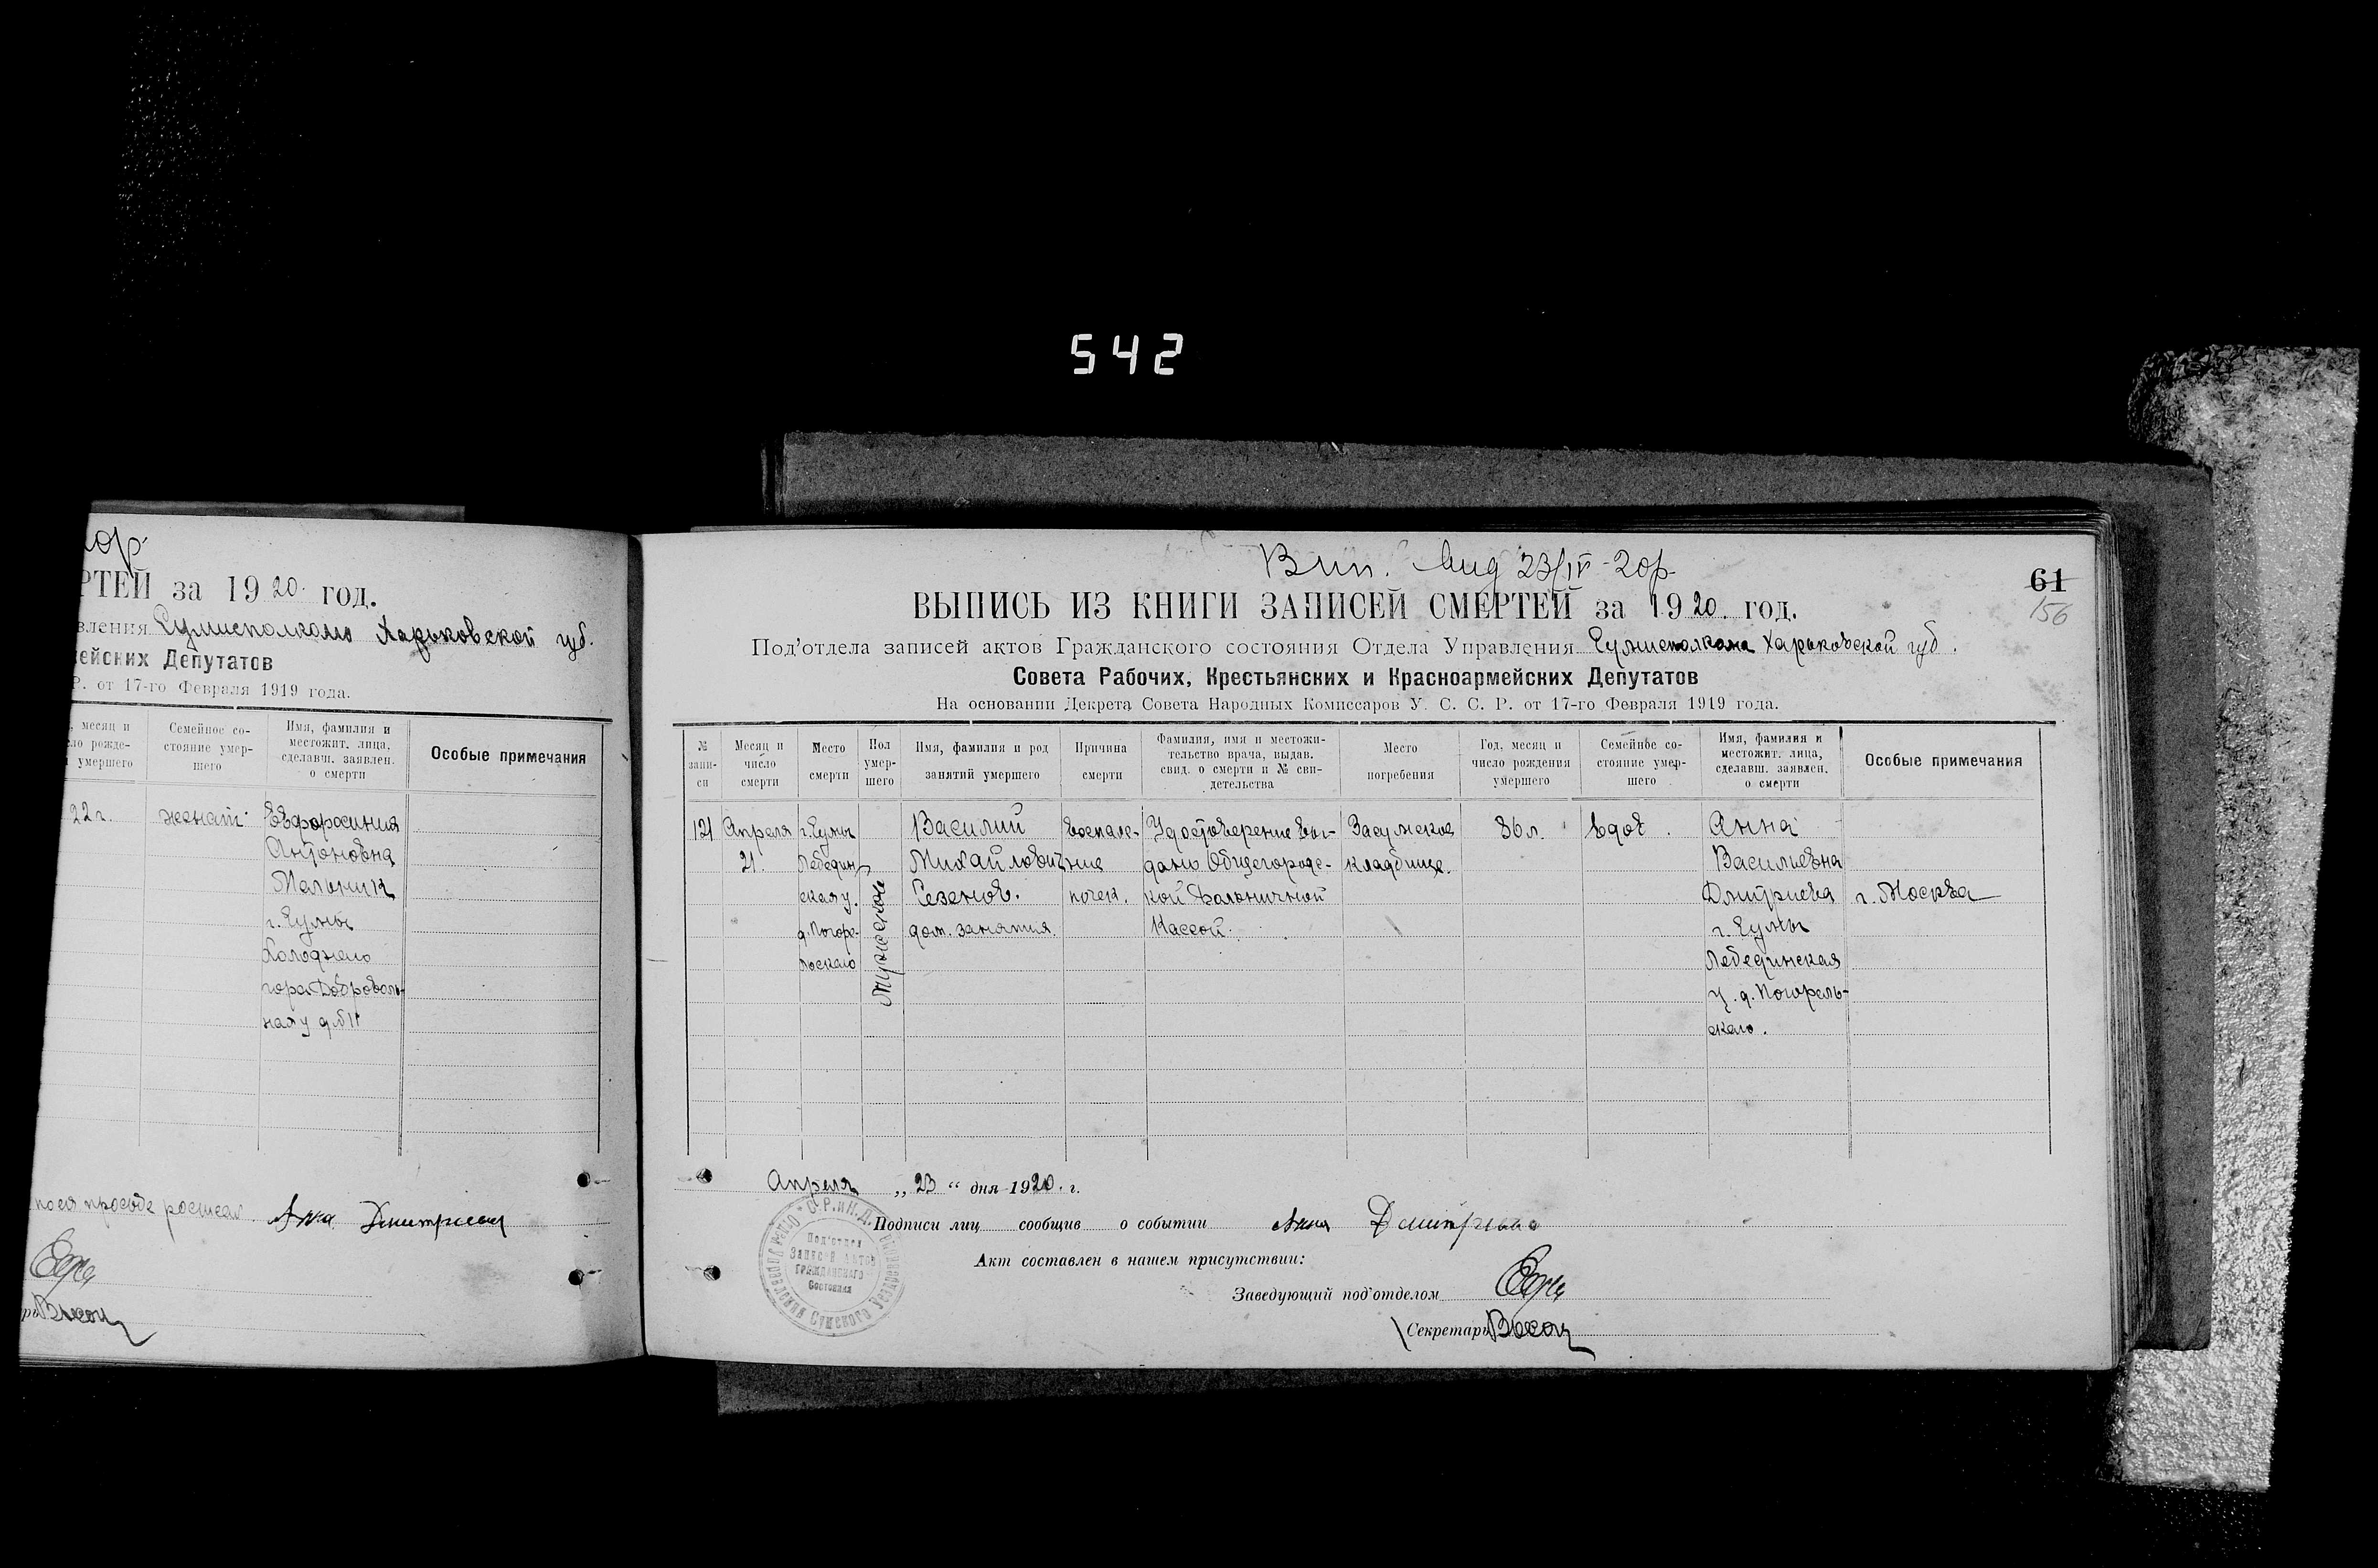 542
РТЕЙ за 1920. год.
вления Сумисполкома Харьковской губ.
ейских Депутатов
Р. от 17-го Февраля 1919 года.
, месяц и
ло рожде-
умершего
Семейное со-
стояние умер-
шего
Имя, фамилия и
местожит. лица,
сделавш. заявлен.
о смерти
Особые примечания
22 г.
женат.
Евфросиния
Антоновна
Мельник
г. Сумы
Холодного
гора Доброволь-
ная у д. № 11
Анна Дмитриева
61
156
23/IV-20р
ВЫПИСЬ ИЗ КНИГИ ЗАПИСЕЙ СМЕРТЕЙ за 1920. год.
Под'отдела записей актов Гражданского состояния Отдела Управления Сумисполкома Харьковской губ.
Совета Рабочих, Крестьянских и Красноармейских Депутатов
На основании Декрета Совета Народных Комиссаров У. С. С. Р. от 17-го Февраля 1919 года.
№
запи-
си
Месяц и
число
смерти
Место
смерти
Пол
умер-
шего
Имя, фамилия и род
занятий умершего
Причина
смерти
Фамилия, имя и местожи-
тельство врача, выдав.
свид. о смерти и № сви-
детельства
Место
погребения
Год, месяц и
число рождения
умершего
Семейное со-
стояние умер-
шего
Имя, фамилия и
местожит. лица,
сделавш. заявлен.
о смерти
Особые примечания
121
Апреля
21.
г. Сумы
Лебедин
ская у.
д. Погоре-
льскаго
Мужеской
Василий
Михайлович
Сезенов.
дом. занятия.
воспале-
ние
почек.
Удостоверение вы-
дано Общегородс-
кой Больничной
Кассой.
Засумское
кладбище.
86 л.
вдов.
Анна
Васильевна
Дмитриева
г. Сумы
Лебединская
у. д. Погорель-
скаго.
г. Москва
Апреля „23“ дня 1920. г.
Подписи лиц сообщив о событии Анна Дмитриева
Акт составлен в нашем присутствии:
Заведующий под'отделом
Секретарь
Под'отдел
Записей Актов
Гражданского
Состояния